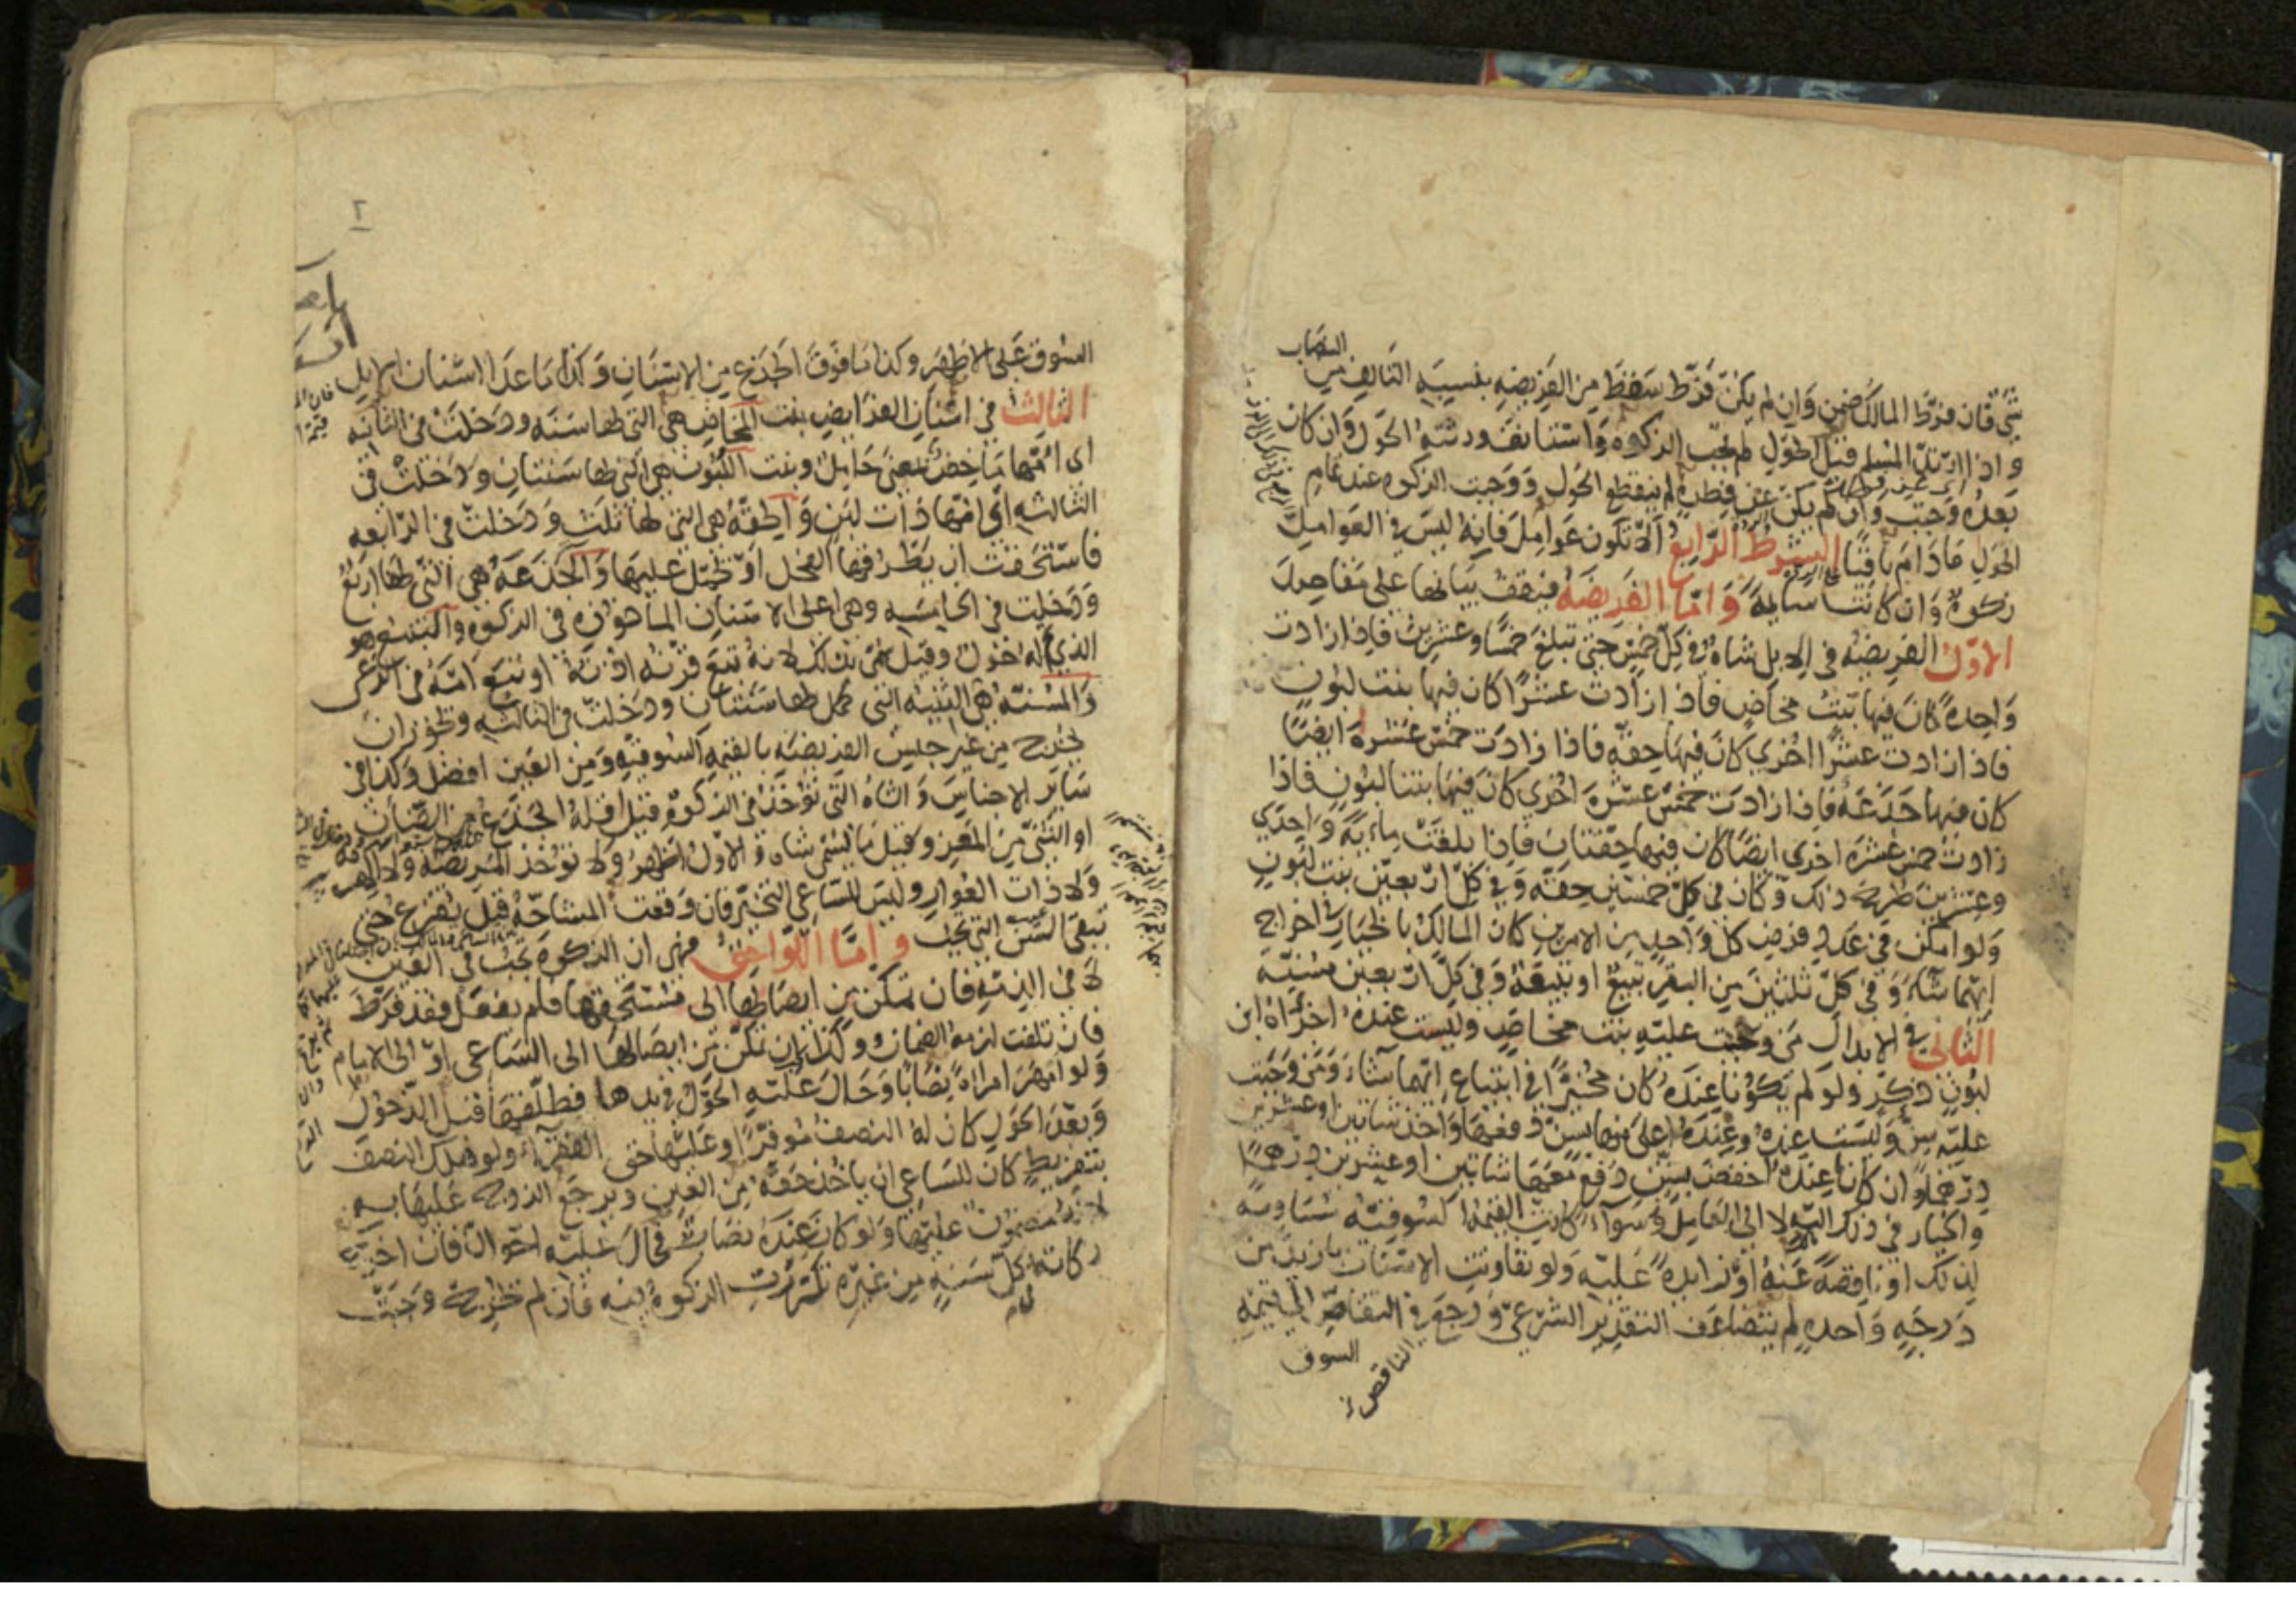 النصاب
شيء فان فرط المالك ضمن وان لم يكن فرط سقط من الفريضة بنسبة التالف من
واذا ارتد المسلم قبل الحول لم تجب الزكوة واستانف ورثته الحول وان كان
بعده وجبت وان لم يكن عن فطرة لم ينقطع الحول ووجبت الزكوة عند تمام
الحول مادام باقيا الشرط الرابع الا تكون عوامل فانه ليس في العوامل
زكوة وان كانت سايمة واما الفريضة فيقف بيانها على مقاصد
الاول الفريضة في الابل شاة في كل خمس حتى تبلغ خمسا وعشرين فاذا زادت
واحدة كان فيها بنت مخاض فاذا زادت عشرا كان فيها بنت لبون
فاذا زادت عشرا اخرى كان فيها حقة فاذا زادت خمس عشرة ايضا
كان فيها جذعة فاذا زادت خمس عشرة اخرى كان فيها بنتا لبون فاذا
زادت خمس عشرة اخرى ايضا كان فيها حقتان فاذا بلغت ماية واحدي
وعشرين طرح ذلك وكان في كل خمسين حقة وفي كل اربعين بنت لبون
ولو امكن في عدد فرض كل واحد من الامرين كان المالك بالخيار في اخراج
ايهما شاء وفي كل ثلثين من البقر تبيع او تبيعة وفي كل اربعين مسنة
الثاني في الابدال من وجبت عليه بنت مخاض وليست عنده اجزأه ابن
لبون ذكر ولو لم يكونا عنده كان مخيرا في ابتياع ايهما شاء ومن وجبت
عليه سن وليست عنده وعنده اعلى منها بسن دفعها واخذ شاتين او عشرين
درهما وان كان عنده اخفض بسن دفع معها شاتين او عشرين درهما
والخيار في ذلك اليه لا الى العامل وسواء كانت القيمة السوقية مساوية
لذلك او ناقصة عنه او زايدة عليه ولو تفاوتت الاسنان بازيد من
درجة واحدة لم يتضاعف التقدير الشرعي ورجع في التقاص الى قيمة
السوق
الناقص
٢
السوق على الاظهر وكذا ما فوق الجذع من الاسنان وكذا ما عدا اسنان الابل
الثالث في اسنان الفرايض بنت المخاض هي التي لها سنة ودخلت في الثانية
اي امها ماخض بمعنى حامل وبنت اللبون هي التي لها سنتان ودخلت في
الثالثة اي امها ذات لبن والحقة هي التي لها ثلث ودخلت في الرابعة
فاستحقت ان يطرقها الفحل او تحمل عليها والجذعة هي التي لها اربع
ودخلت في الخامسة وهي اعلى الاسنان الماخوذة في الزكوة والتبيع هو
الذي له حول وقيل سمى بذلك لانه تبع قرنه اذنه او تبع امه في الرعى
والمسنة هي الثنية التي كمل لها سنتان ودخلت في الثالثة وتجوز ان
يخرج من غير جنس الفريضة بالقيمة السوقية ومن العين افضل وكذا في
ساير الاجناس والشاة التي تؤخذ في الزكوة قيل اقله الجذع من الضان
او الثني من المعز وقيل ما يسمى شاة والاول اظهر ولا تؤخذ المريضة ولا الهرمة
ولا ذات العوار وليس للساعي التخير فان وقعت المشاحة قيل يقرع حتى
تبقى السن التي تجب واما اللواحق فهي ان الزكوة تجب في العين
لا في الذمة فان تمكن من ايصالها الى مستحقها فلم يفعل فقد فرط
فان تلفت لزمه الضمان وكذا ان تمكن من ايصالها الى الساعي او الى الامام
ولو امهر امراة نصابا وحال عليه الحول في يدها فطلقها قبل الدخول
وبعد الحول كان له النصف موفرا وعليها حق الفقراء ولو هلك النصف
بتفريط كان للساعي ان ياخذ حقه من العين ويرجع الزوج عليها به
لانه مضمون عليها ولو كان عنده نصاب فحال عليه احوال فان اخرج
زكاته كل سنة من غيره تكررت الزكوة فيه فان لم يخرج وجبت